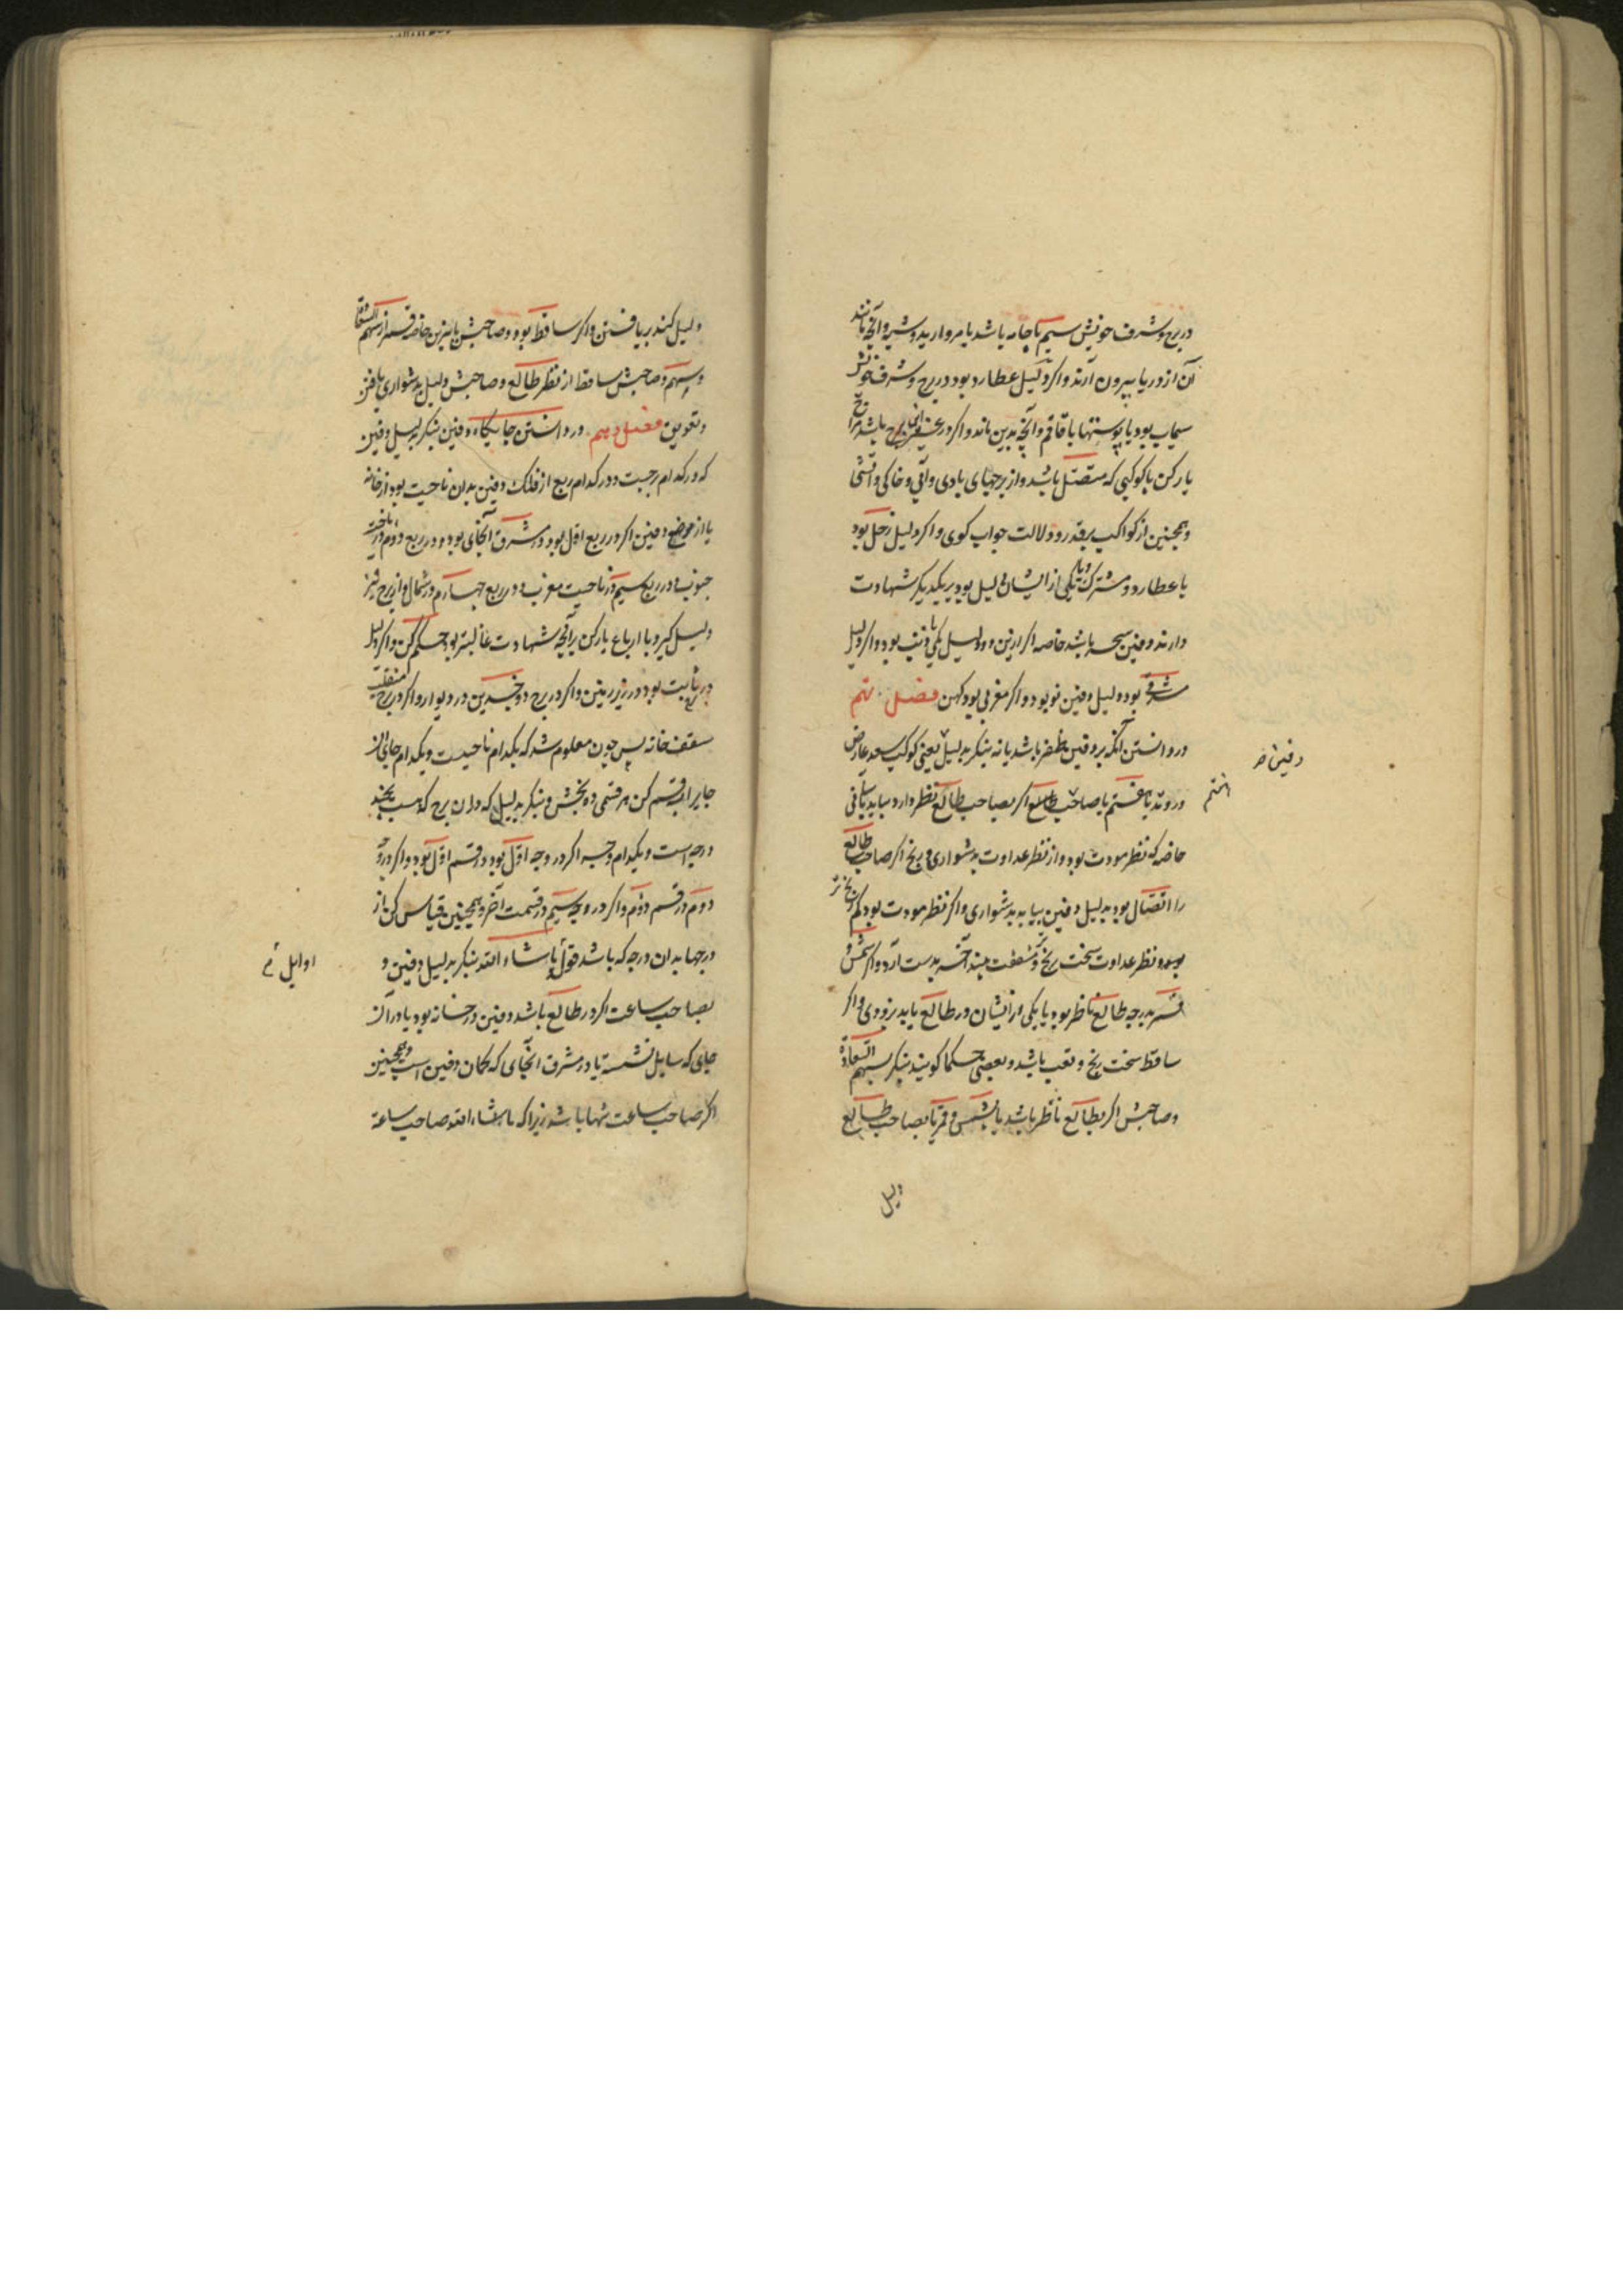 در برج و شرف خویش سیم یا جامه باشد یا مروارید و شبه و آنچه مانند
آن از دریا بیرون آرند و اگر دلیل عطارد بود در برج و شرف خویش
سیماب بود یا پوستها یا قاقم و آنچه بدین ماند و اگر در برج باشد
یار کن با کوکبی که متصل باشد و از برجهای بادی و آبی و خاکی و آتشی
و همچنین از کواکب بر قدر و دلالت جواب گوی و اگر دلیل زحل بود
یا عطارد و مشترک یکی از ایشان دلیل بود بر یکدیگر شهادت
دارند دفین باشد خاصه اگر ازین دو دلیل یکی با ذنب بود و اگر دلیل
شرقی بود دلیل دفین نو بود و اگر مغربی بود کهن فصل نهم
در دانستن آنکه بر دفین ظفر باشد یا نه بنگر بدلیل یعنی کوکب سعد عارض
در وتد یا هفتم یا صاحب طالع اگر بصاحب طالع نظر دارد بیابد یافتنی
خاصه که نظر مودت بود و از نظر عداوت بدشواری و رنج اگر صاحب طالع
را اتصال بود بدلیل دفین بیابد بدشواری و اگر نظر مودت بود کم رنج تر
بود و نظر عداوت سخت رنج و مشقت بیند آخر بدست آرد و اگر شمس و
قمر بدرجه طالع ناظر بود یا یکی از ایشان در طالع یابد بزودی و اگر
ساقط سخت رنج و تعب باشد و بعضی حکما گویند بنگر بسهم السعادة
و صاحبش اگر بطالع ناظر باشد یا بشمس و قمر یا بصاحب طالع
دلیل
دلیل کند بر یافتن و اگر ساقط بود و صاحبش با نیرین خاصه قمر از سهم السعادة
و سهم و صاحبش ساقط از نظر طالع و صاحبش دلیل بدشواری یافتن
و تعویق فصل دهم در دانستن جایگاه دفین بنگر بدلیل دفین
که در کدام برجست و در کدام ربع از فلک دفین بدان ناحیت بود از خانه
یا از موضع دفین اگر در ربع اول بود در مشرق آنجای بود و در ربع دوم در ناحیت
جنوب و در ربع سیم در ناحیت مغرب و در ربع چهارم در شمال و از برج نیز
دلیل گیر و با ارباع یار کن بر آنچه شهادت غالبتر بود حکم کن و اگر دلیل
در برج ثابت بود در زیر زمین و اگر در برج دو جسدین در دیوار و اگر در برج منقلب
سقف خانه پس چون معلوم شد که بکدام ناحیت و بکدام جای از
جایرا قسم کن هر قسمی ده بخش و بنگر بدلیل که در آن برج که هست بچند
درجه است و بکدام وجه اگر در وجه اول بود در قسم اول بود و اگر در وجه
دوم در قسم دوم و اگر در وجه سیم در قسمت آخر و همچنین قیاس کن از
درجها بدان درجه که باشد قول ماشاءالله بنگر بدلیل دفین و
بصاحب ساعت اگر در طالع باشد دفین در خانه بود یا در آن
جای که سایل نشسته یا در مشرق آنجای که گمان دفین است و همچنین
اگر صاحب ساعت تنها باشد زیرا که ماشاءالله صاحب ساعة